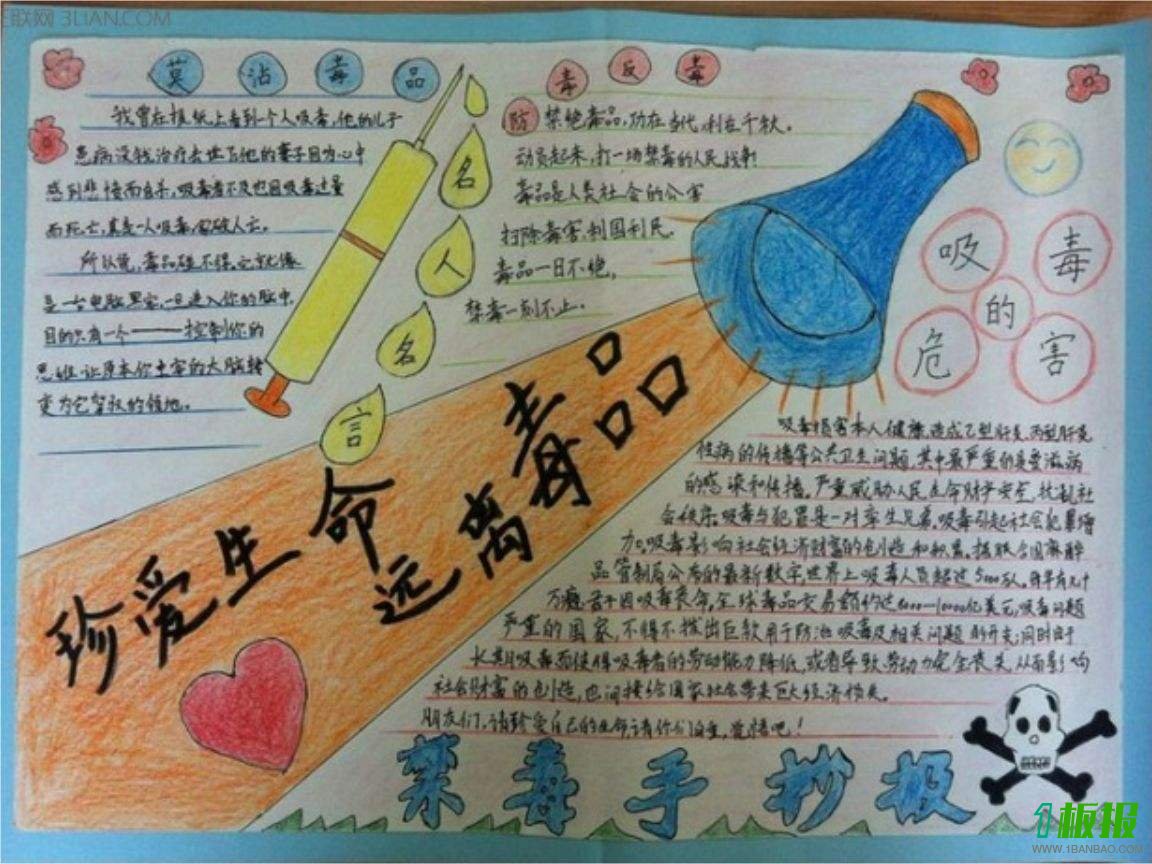 联网 3LIAN.COM
莫沾毒品
我曾在报纸上看到一个人吸毒,他的儿子
患病没钱治疗去世了他的妻子因为心中
感到悲愤而自杀,吸毒者不及也因吸毒过量
而死亡,真是一人吸毒,家破人亡。
所以说,毒品碰不得。它就像
是一台电脑黑客,一旦进入你的脑中,
目的只有一个———控制你的
思维让原本你主宰的大脑转
变为它掌权的领地。
名人名言
防毒反毒
禁绝毒品,功在当代,利在千秋。
动员起来,打一场禁毒的人民战争
毒品是人类社会的公害
扫除毒害,利国利民。
毒品一日不绝,
禁毒一刻不止。
吸毒的危害
吸毒损害本人健康,造成乙型肝炎、丙型肝炎
性病的传播等公共卫生问题,其中最严重的是艾滋病
的感染和传播。严重威胁人民生命财产安全,扰乱社
会秩序。吸毒与犯罪是一对孪生兄弟。吸毒引起社会犯罪增
加。吸毒影响社会经济财富的创造和积累。据联合国麻醉
品管制局公布的最新数字,世界上吸毒人员超过5000万。每年有几十
万瘾君子因吸毒丧命。全球毒品交易额约达8000—10000亿美元,吸毒问题
严重的国家,不得不拨出巨款用于防治吸毒及相关问题的开支;同时由于
长期吸毒而使得吸毒者的劳动能力降低,或者导致劳动力完全丧失,从而影响
社会财富的创造,也间接给国家社会带来巨大经济损失。
朋友们,请珍爱自己的生命,请你们自重,觉悟吧!
珍爱生命
远离毒品
禁毒手抄报
1板报
WWW.1BANBAO.COM